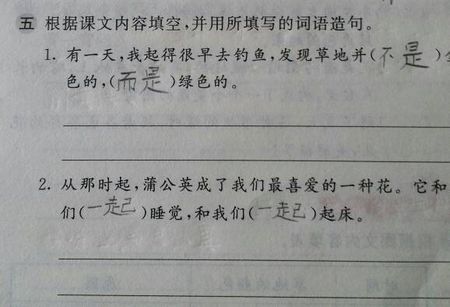 五 根据课文内容填空,并用所填写的词语造句。
1. 有一天,我起得很早去钓鱼,发现草地并(不是)
色的,(而是)绿色的。
2. 从那时起,蒲公英成了我们最喜爱的一种花。它和
们(一起)睡觉,和我们(一起)起床。